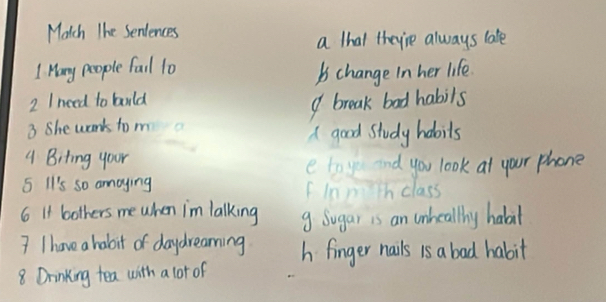 Match the Sentences
1 Many people fail to
2 I need to build
3 She wants to
4 Biting your
5 It's so annoying
6 It bothers me when i'm talking
7 I have a habit of daydreaming
8 Drinking tea with a lot of
a that they're always late
b change in her life.
c break bad habits
d good study habits
e to you and you look at your phone
f In math class
g sugar is an unhealthy habit
h finger nails is a bad habit